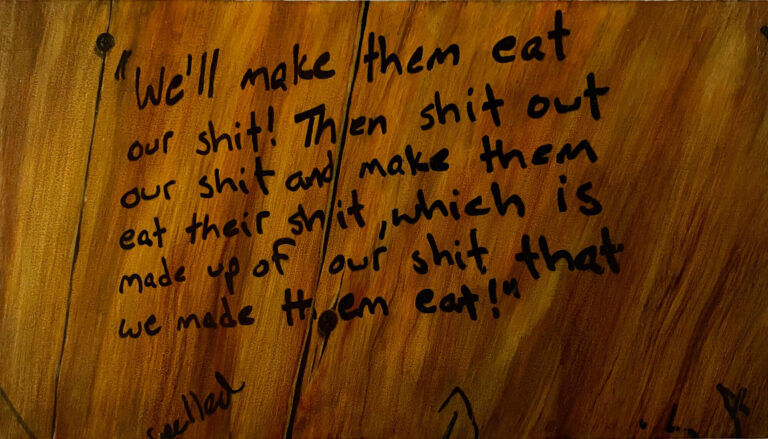 "We'll make them eat
our shit! Then shit out
our shit and make them
eat their shit, which is
made up of our shit that
we made them eat!"